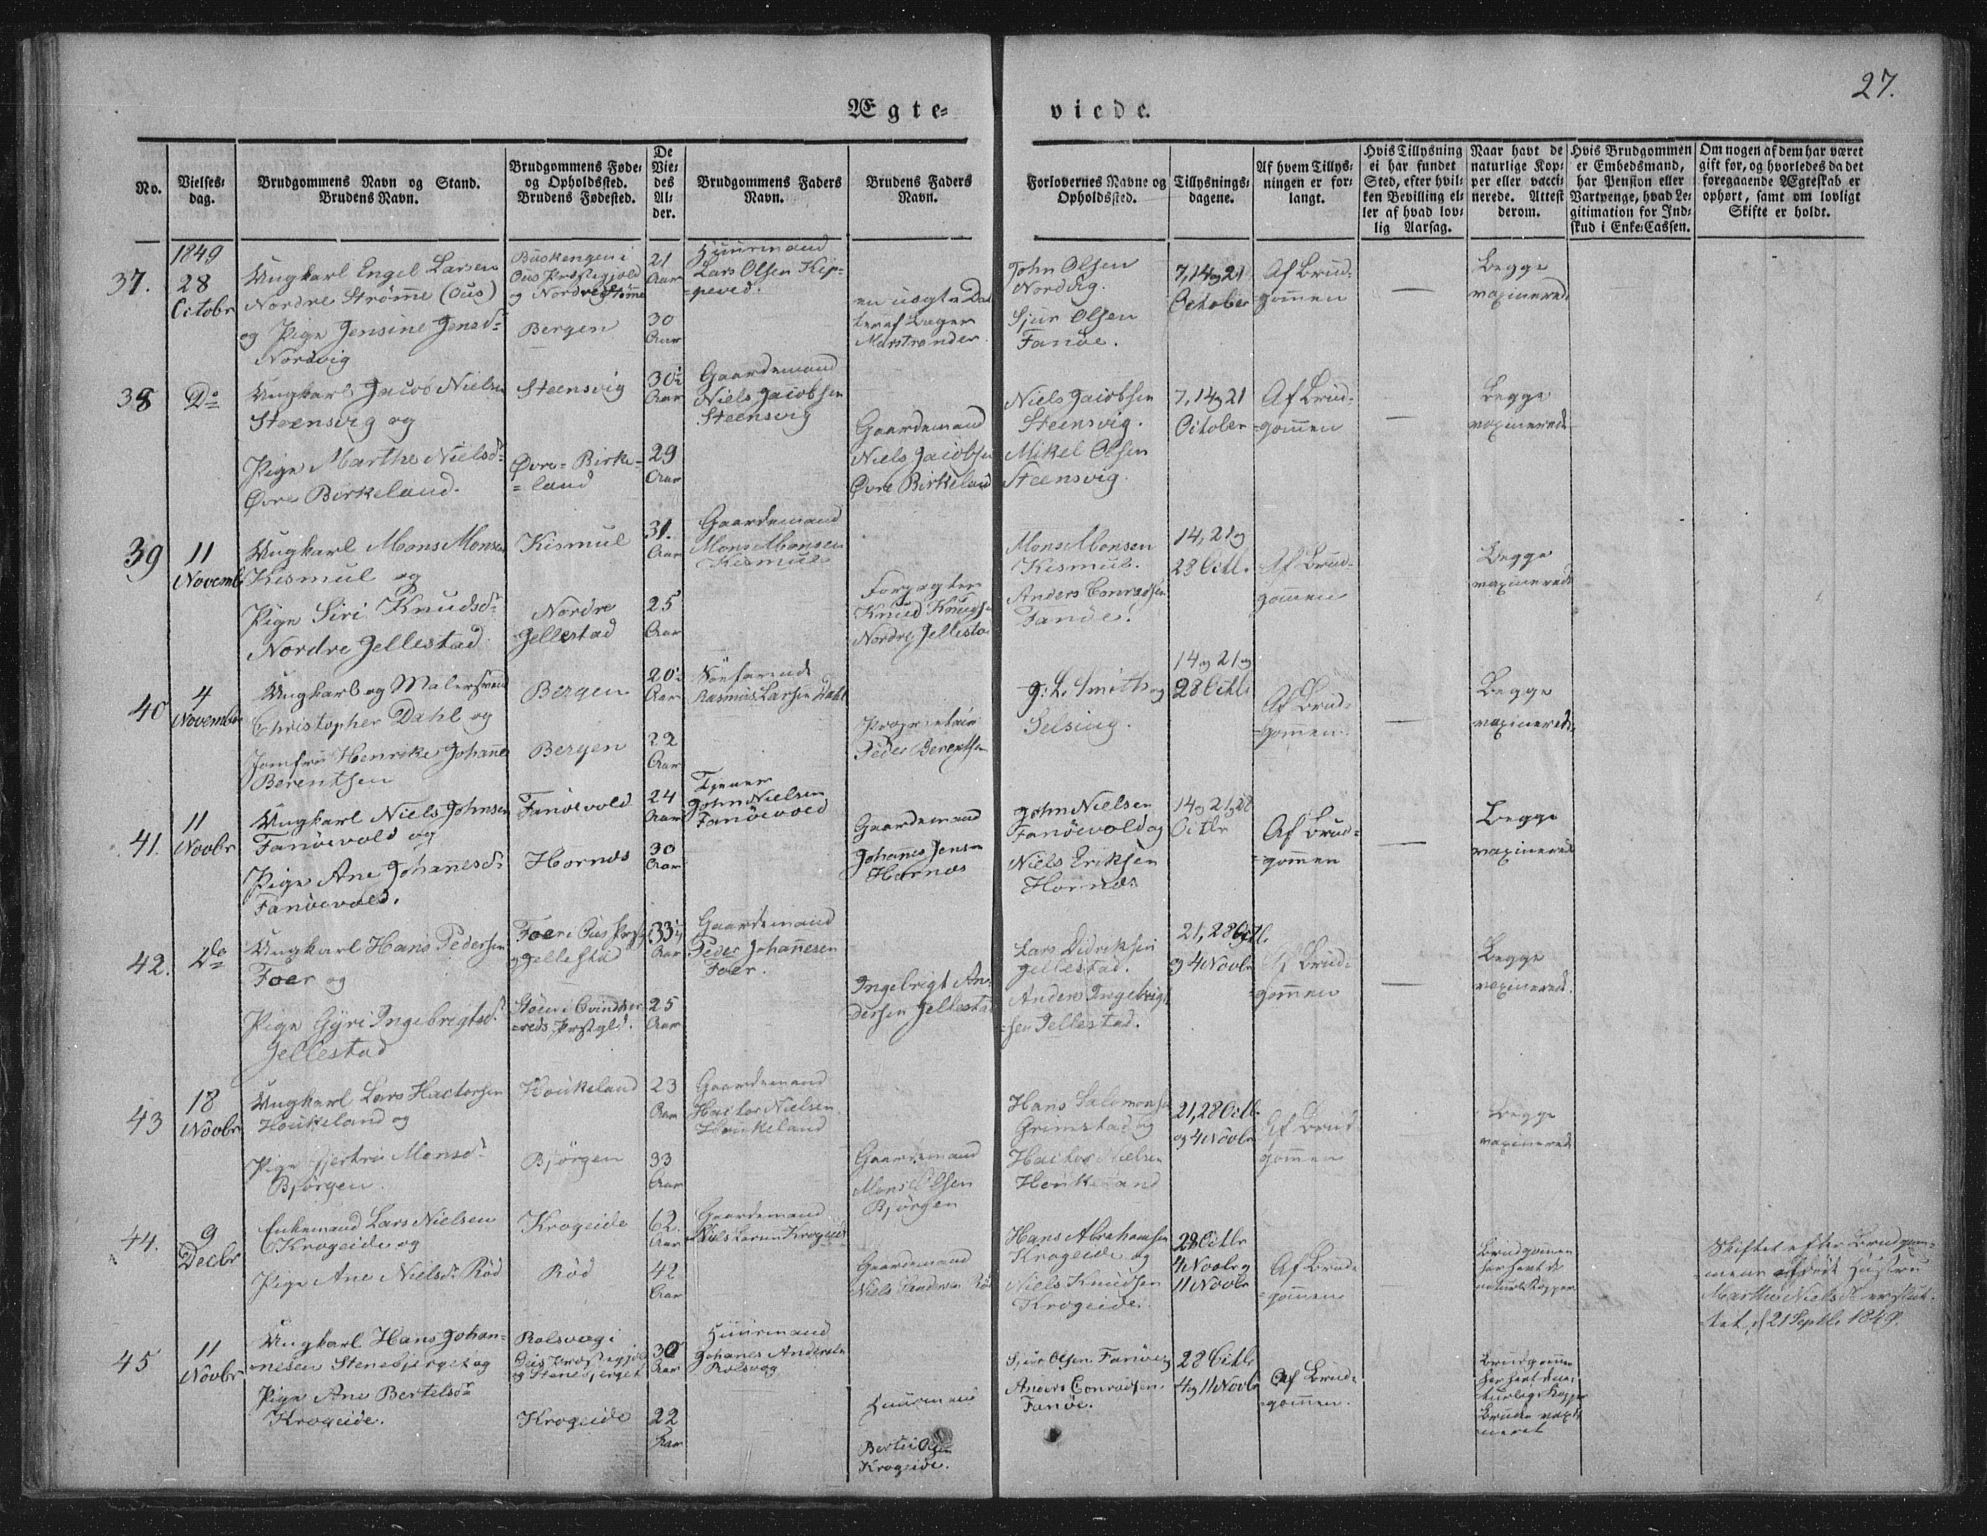 27.
Ægte-
viede.
No.
Vielses-
dag.
Brudgommens Navn og Stand.
Brudens Navn.
Brudgommens Føde-
og Opholdssted.
Brudens Fødested.
De
Vie-
des
Al-
der.
Brudgommens Faders
Navn.
Brudens Faders
Navn.
Forlovernes Navne og
Opholdssted.
Tillysnings-
dagene.
Af hvem Tillys-
ningen er for-
langt.
Hvis Tillysning
ei har fundet
Sted, efter hvil-
ken Bevilling el-
ler af hvad lov-
lig Aarsag.
Naar havt de
naturlige Kop-
per eller vacci-
nerede. Attest
derom.
Hvis Brudgommen
er Embedsmand,
har Pension eller
Vartpenge, hvad Le-
gitimation for Ind-
skud i Enke-Cassen.
Om nogen af dem har været
gift før, og hvorledes da det
foregaaende Ægteskab er
ophørt, samt om lovligt
Skifte er holdt.
1849
37.
28
Octobr
Ungkarl Engel Larsen
Nordre Strømme (Ous)
og Pige Jensine Jensd.
Nordvig
Buskengen i
Ous Præstegjeld
og Nordre Strømme
Bergen
21
Aar
30
Aar
Huurmand
Lars Olsen Kip-
peved.
en uægte Dat-
ter af Læger
Marstrander
John Olsen
Nordvig.
Sjur Olsen
Fanøe.
7, 14 og 21
October
Af Brud-
gommen
—
Begge
vaxinerede
38
Do
Ungkarl Jacob Nielsen
Steensvig og
Pige Marthe Nielsd.
Øvre Birkeland.
Steensvig
Øvre-Birke-
land
30½
Aar
29
Aar
Gaardemand
Niels Jacobsen
Steensvig
Gaardemand
Niels Jacobsen
Øvre Birkeland
Niels Jacobsen
Steensvig.
Mikel Olsen
Steensvig.
7, 14 og 21
October
Af Brud-
gommen
—
Begge
vaxinerede
39
11
Novemb
Ungkarl Mons Monsen
Kismul og
Pige Siri Knudsd.
Nordre Jellestad
Kismul
Nordre
Jellestad
31.
Aar
25
Aar
Gaardemand
Mons Monsen
Kismul
Forpagter
Knud Knudsen
Nordre Jellestad
Mons Monsen
Kismul.
Anders Conradsen
Fanøe.
14, 21 og
28 Octb.
Af Brud-
gommen
Begge
vaxinerede
40
4
November
Ungkarl og Malersvend
Christopher Dahl og
Jomfru Henrike Johanne
Berentsen
Bergen
Bergen
20½
Aar
22
Aar
Søefarende
Rasmus Larsen Dahl
Proprietair
Peder Berentsen
J. L. Smith og
Selsing.
14 og 21 og
28 Octb.
Af Brud-
gommen
—
Begge
vaxinerede
41.
11
Novbr
Ungkarl Niels Johnsen
Fanøevold og
Pige Ane Johanesd.
Fanøevold.
Fanøevold
Hornæs
24
Aar
30
Aar
Tjener
John Nielsen
Fanøevold
Gaardemand
Johannes Jensen
Hornæs
John Nielsen
Fanøevold og
Niels Eriksen
Hornæs
14 og 21 og 28
Octbr
Af Brud-
gommen
—
Begge
vaxinerede
42.
Do
Ungkarl Hans Pedersen
Foer og
Pige Gyri Ingebrigtsd.
Jellestad
Foer i Ous Præstg.
og Jellestad
Støen i Qvindher-
reds Præstgld.
33¼
Aar
25
Aar
Gaardemand
Peder Johannesen
Foer.
Ingebrigt An-
dersen Jellestad
Lars Didriksen
Jellestad.
Anders Ingebrigt-
sen Jellestad.
21, 28 Octb.
og 4 Novbr
Af Brud-
gommen
—
Begge
vaxinerede.
43
18
Novbr
Ungkarl Lars Hactorsen
Houkeland og
Pige Gjertrü Monsd.
Bjørgen.
Houkeland
Bjørgen
23
Aar
33
Aar
Gaardemand
Hactor Nielsen
Houkeland
Gaardemand
Mons Olsen
Bjørgen
Hans Salomonsen
Grimstad og
Hactor Nielsen
Houkeland
21, 28 Octb.
og 4 Novbr
Af Brud-
gommen
Begge
vaxinerede
44.
9
Decbr
Enkemand Lars Nielsen
Krogeide og
Pige Ane Nielsd. Rød
Krogeide
Rød
62.
Aar
42
Aar
Gaardemand
Niels Larsen Krogeide
Gaardemand
Niels Andersen Rød
Hans Abrahamsen
Krogeide og
Niels Knudsen
Krogeide.
28 Octbr
4 Novbr og
11 Novbr
Af Brud-
gommen
—
Brudgommen
har havt de
naturl. Kopper
Skiftet efter Brudgom-
mens afdøde Hustru
Marthe Nielsd. er slut-
tet d. 21 Septb. 1849.
45
11
Novbr
Ungkarl Hans Johan-
nesen Stenebjerget og
Pige Ane Bertelsd.
Krogeide.
Rolsvog i
Ous Præstegjeld
og Stenebjerget
Krogeide
30
Aar
22
Aar
Huurmand
Johanes Andersen
Rolsvog
Huurmand
Bertel Olsen
Krogeide.
Sjur Olsen Fanøe og
Anders Conradsen
Fanøe.
28 Octbr
4 og 11 Novbr
Af Brud-
gommen.
Brudgommen
har havt de na-
turlige Kopper
Bruden vaxi-
neret